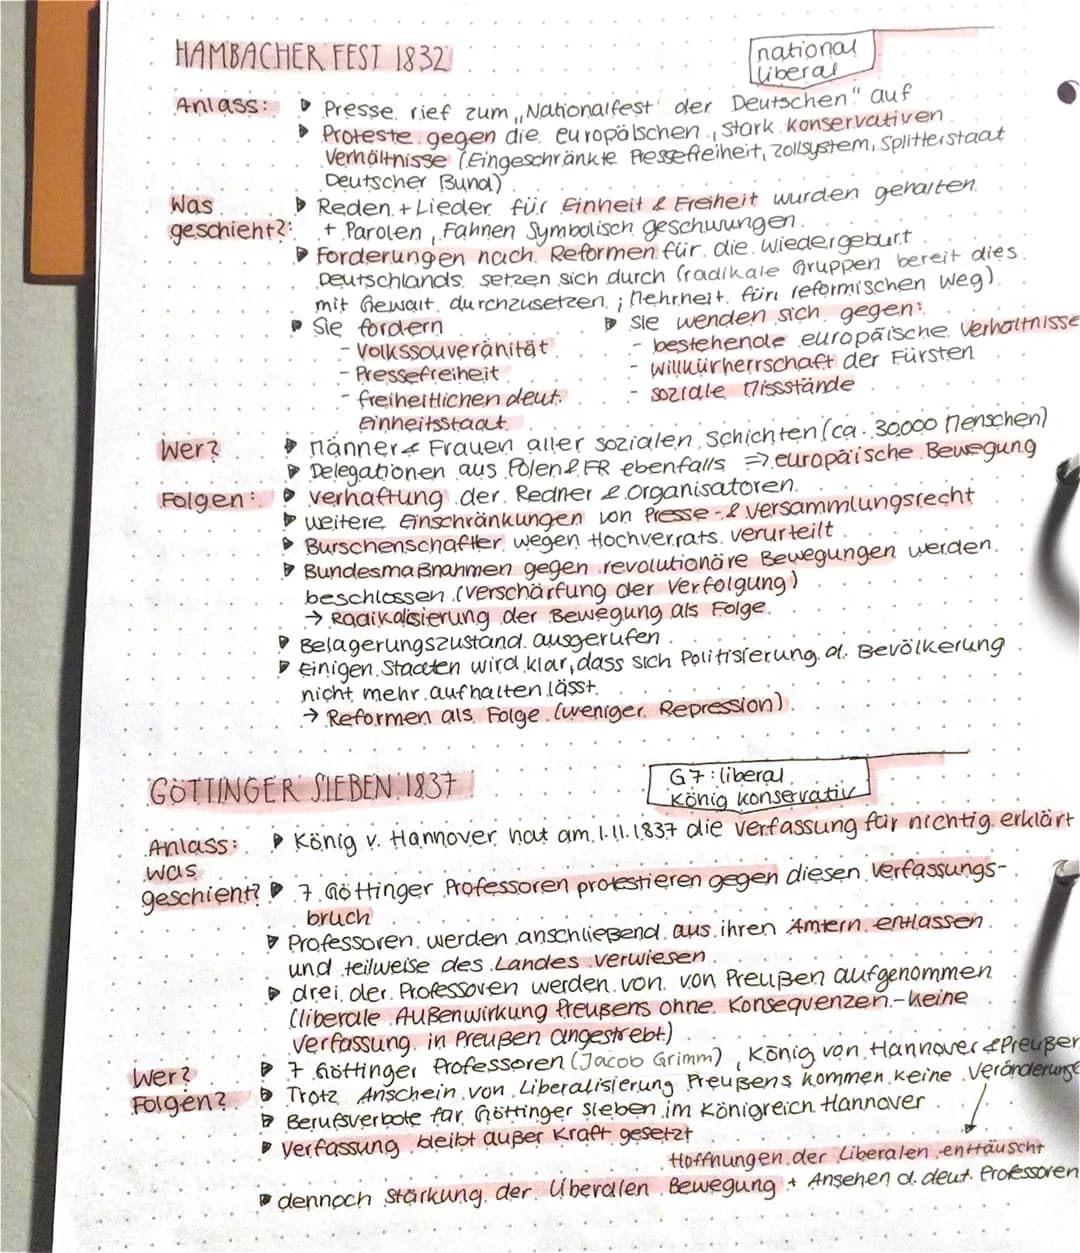 HAMBACHER FEST 1832
national
liberal
Anlass: Presse rief zum „Nationalfest der Deutschen" auf
Proteste gegen die europäischen, stark konservativen
Verhältnisse (Eingeschränkte Pressefreiheit, Zollsystem, Splitterstaat
Deutscher Bund)
Was Reden + Lieder für Einheit & Freiheit wurden gehalten
geschieht?: + Parolen, Fahnen symbolisch geschwungen
Forderungen nach Reformen für die Wiedergeburt
Deutschlands setzen sich durch (radikale Gruppen bereit dies
mit Gewalt durchzusetzen; Mehrheit für reformischen Weg)
Sie fordern
- Volkssouveränität
- Pressefreiheit
- freiheitlichen deut.
Einheitsstaat
Sie wenden sich gegen:
- bestehende europäische Verhältnisse
- Willkürherrschaft der Fürsten
- soziale Missstände
Wer? Männer & Frauen aller sozialen Schichten (ca. 30.000 Menschen)
Delegationen aus Polen & FR ebenfalls => europäische Bewegung
Folgen: Verhaftung der Redner & Organisatoren
weitere Einschränkungen von Presse- & Versammlungsrecht
Burschenschaftler wegen Hochverrats verurteilt
Bundesmaßnahmen gegen revolutionäre Bewegungen werden
beschlossen (Verschärfung der Verfolgung)
→ Radikalisierung der Bewegung als Folge
Belagerungszustand ausgerufen
Einigen Staaten wird klar, dass sich Politisierung d. Bevölkerung
nicht mehr aufhalten lässt
→ Reformen als Folge (weniger Repression)
GÖTTINGER SIEBEN 1837
G7: liberal
König konservativ
Anlass: König v. Hannover hat am 1.11.1837 die Verfassung für nichtig erklärt
Was
geschieht? 7 Göttinger Professoren protestieren gegen diesen Verfassungs-
bruch
Professoren werden anschließend aus ihren Ämtern entlassen
und teilweise des Landes verwiesen
drei der Professoren werden von von Preußen aufgenommen
(liberale Außenwirkung Preußens ohne Konsequenzen - keine
Verfassung in Preußen angestrebt)
Wer? 7 Göttinger Professoren (Jacob Grimm), König von Hannover & Preußen
Folgen? Trotz Anschein von Liberalisierung Preußens kommen keine Veränderunge
Berufsverbote für Göttinger Sieben im Königreich Hannover
Verfassung bleibt außer Kraft gesetzt
Hoffnungen der Liberalen enttäuscht
dennoch Stärkung der liberalen Bewegung + Ansehen d. deut. Professoren